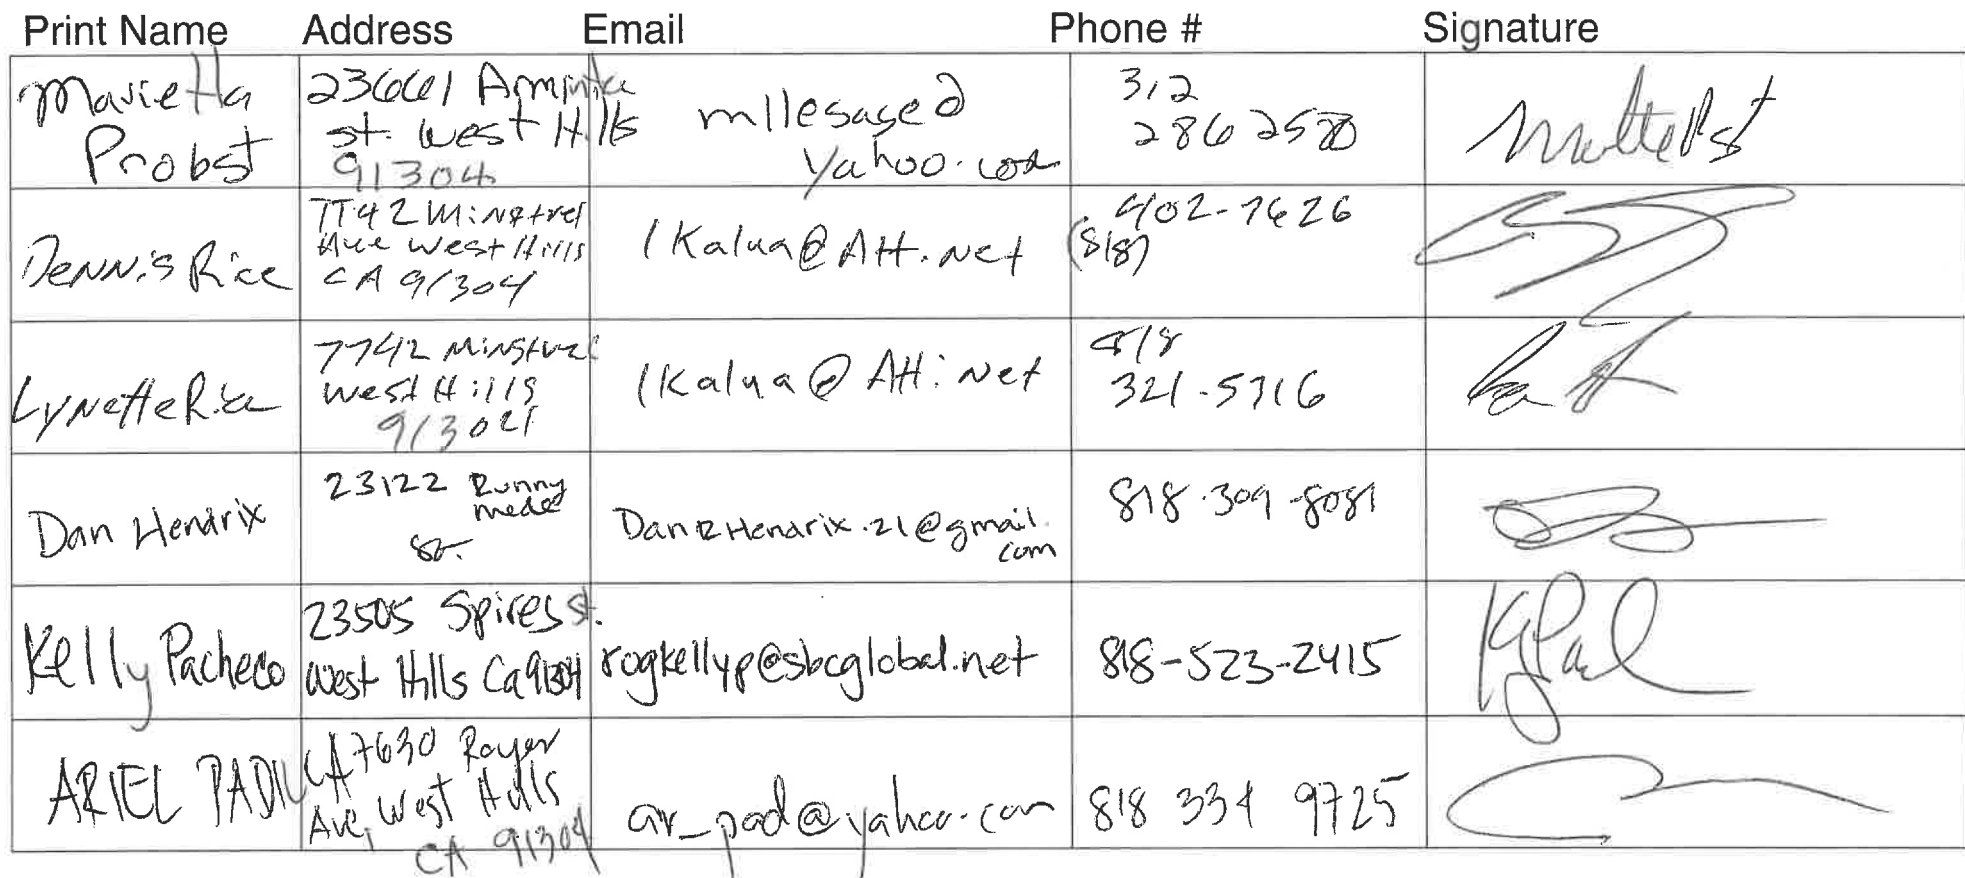 Print Name Address Email Phone # Signature
Marietta
Probst
23661 Arminta
st. West Hills
91304
mllesage@
yahoo.com
312
286 2580
Dennis Rice
7742 Minstrel
Ave West Hills
CA 91304
lkalua@Att.net
402-7626
(818)
Lynette Rice
7742 Minstrel
West Hills
91304
lkalua@Att.net
818
321-5716
Dan Hendrix
23122 Runny
mede
St.
DanRHendrix.21@gmail.
com
818-309-8081
Kelly Pacheco
23505 Spires st.
West Hills Ca 91304
rogkellyp@sbcglobal.net
818-523-2415
ARIEL PADILLA
7630 Royer
Ave, West Hills
CA 91304
ar_pad@yahoo.com
818 334 9725